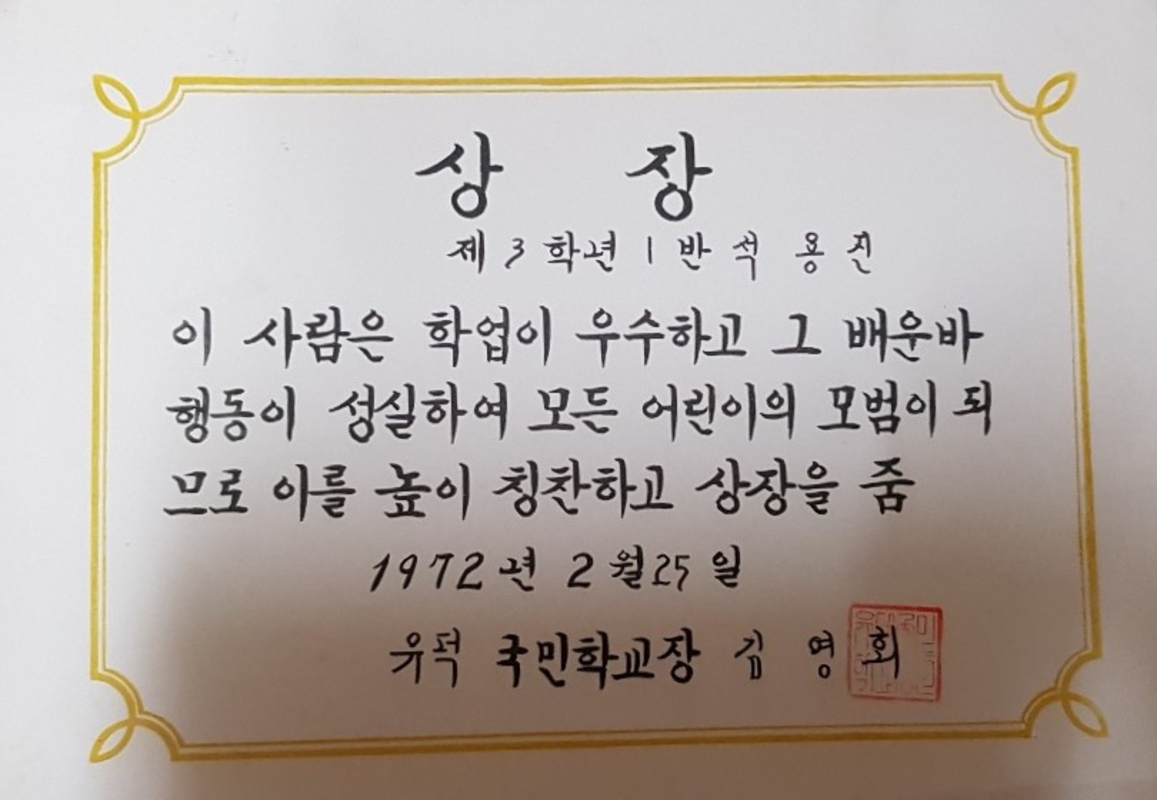 상 장
제 3 학년 1 반 석 용 진
이 사람은 학업이 우수하고 그 배운바
행동이 성실하여 모든 어린이의 모범이 되
므로 이를 높이 칭찬하고 상장을 줌
1972 년 2 월 25 일
유덕 국민학교장 김 영 회